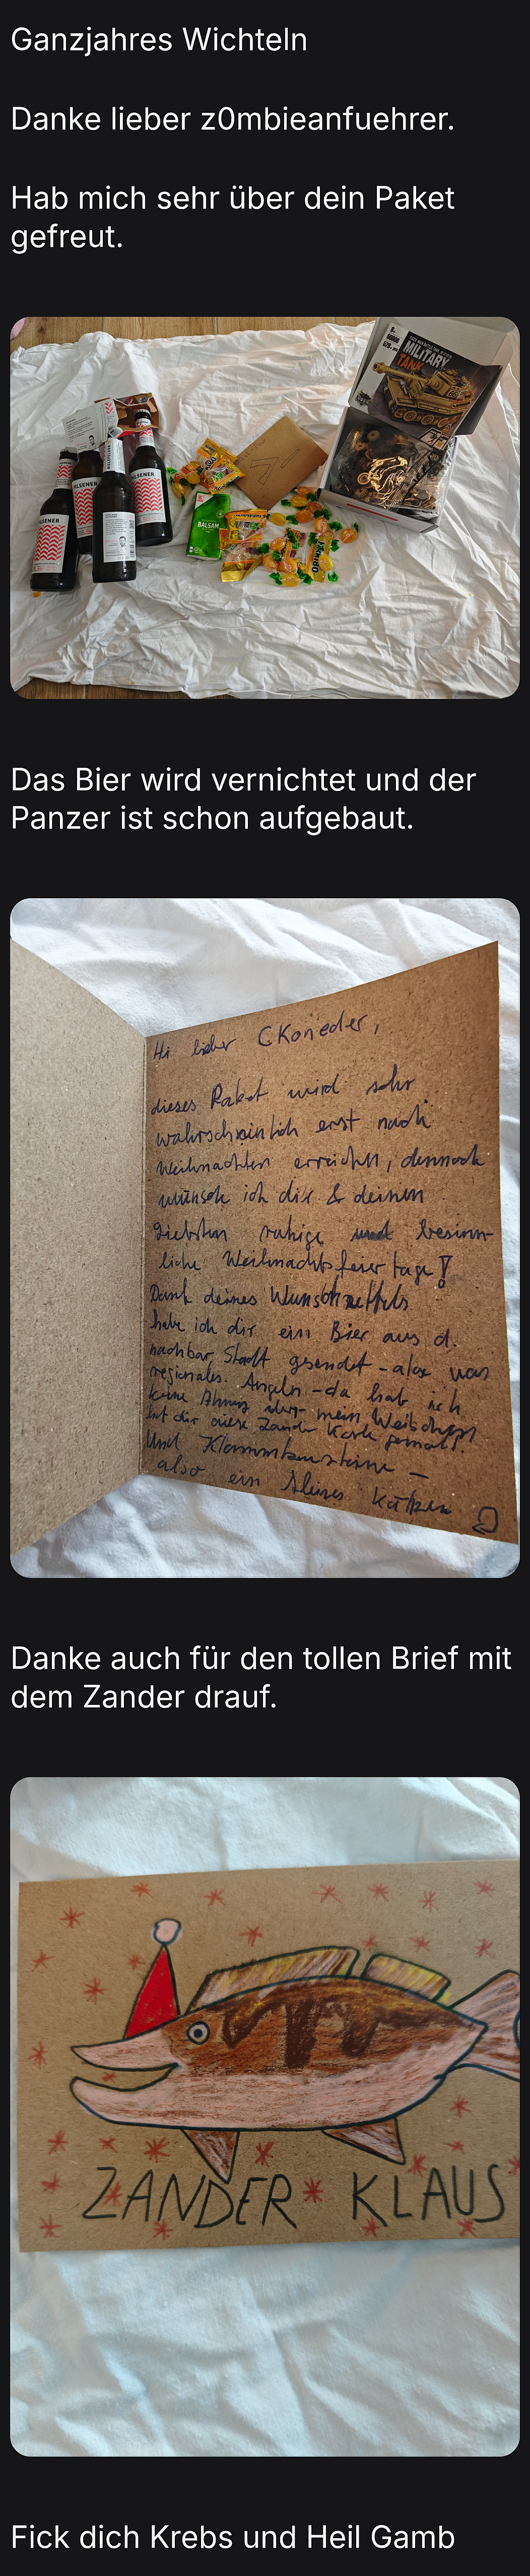 Ganzjahres Wichteln
Danke lieber z0mbieanfuehrer.
Hab mich sehr über dein Paket
gefreut.
MILITARY
TANK
PILSENER
PILSENER
PILSENER
BALSAM
HARIBO
Das Bier wird vernichtet und der
Panzer ist schon aufgebaut.
Hi lieber CKoneder,
dieses Paket wird sehr
wahrscheinlich erst nach
Weihnachten erreichen, dennoch
wünsch ich dir & deinen
liebsten ruhige und besinn-
liche Weihnachtsfeiertage!
Dank deines Wunschzettels
habe ich dir ein Bier aus d.
nachbar Stadt gesendet - also was
regionales. Angeln - da hab ich
keine Ahnung mein Weibchen
hat dir diese Zander Karte gemalt!
Und Klemmbausteine -
also ein kleines
Danke auch für den tollen Brief mit
dem Zander drauf.
ZANDER KLAUS
Fick dich Krebs und Heil Gamb